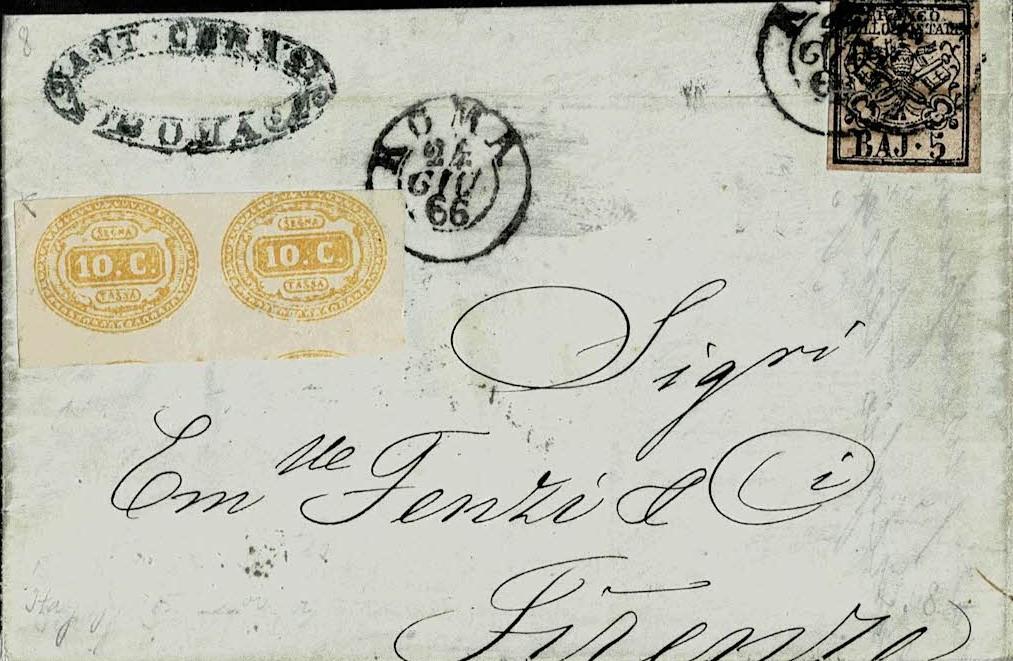 8
SANT CERASI
ROMA
ROMA
24
GIU
66
FRANCO
BOLLO POSTALE
BAJ·5
SEGNA
10. C.
TASSA
SEGNA
10. C.
TASSA
Sigri
Em^ve Fenzi & Ci
Firenze